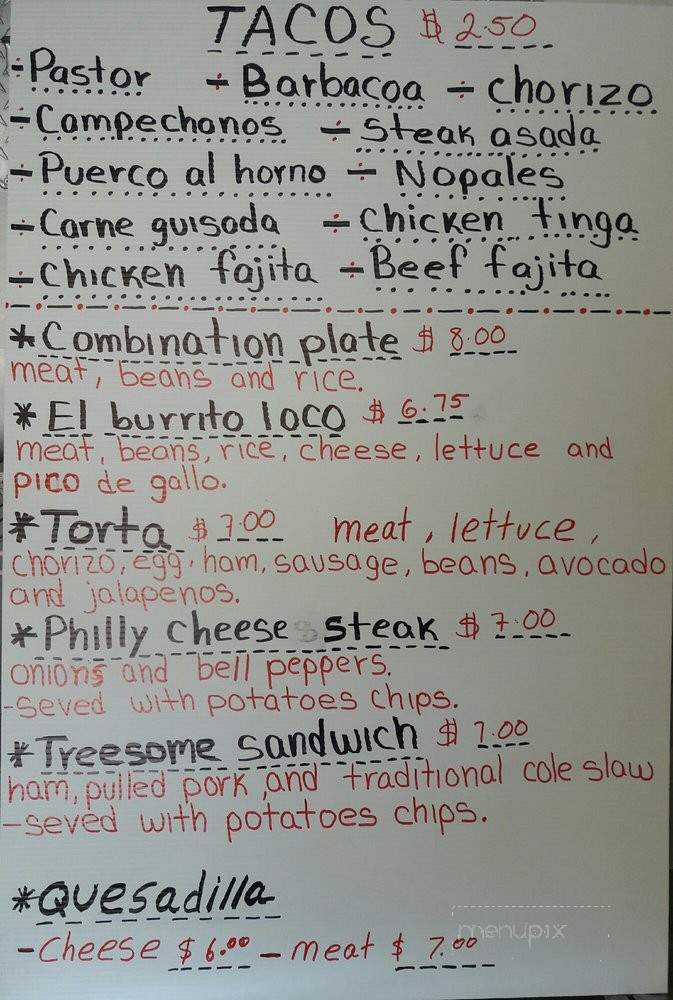 TACOS $ 2.50
÷Pastor ÷ Barbacoa ÷ chorizo
÷Campechanos ÷ steak asada
÷Puerco al horno ÷ Nopales
÷Carne guisada ÷ chicken tinga
÷chicken fajita ÷Beef fajita
*Combination plate $ 8.00
meat, beans and rice.
*El burrito loco $ 6.75
meat, beans, rice, cheese, lettuce and
pico de gallo.
*Torta $ 7.00 meat, lettuce,
chorizo, egg, ham, sausage, beans, avocado
and jalapenos.
*Philly cheese steak $ 7.00
onions and bell peppers.
-seved with potatoes chips.
*Treesome sandwich $ 7.00
ham, pulled pork, and traditional cole slaw
-seved with potatoes chips.
*Quesadilla
-Cheese $ 6.00 - meat $ 7.00
menupix